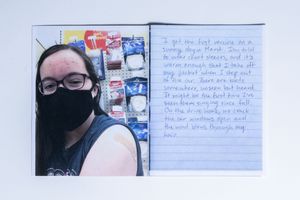 I get the first vaccine on a
sunny day in March. I'm able
to wear short sleeves, and it's
warm enough that I take off
my jacket when I step out
of the car. There are birds
somewhere, unseen but heard.
It might be the first time I've
heard them singing since fall.
On the drive home, we crack
the car windows open and
the wind blows through my
hair.